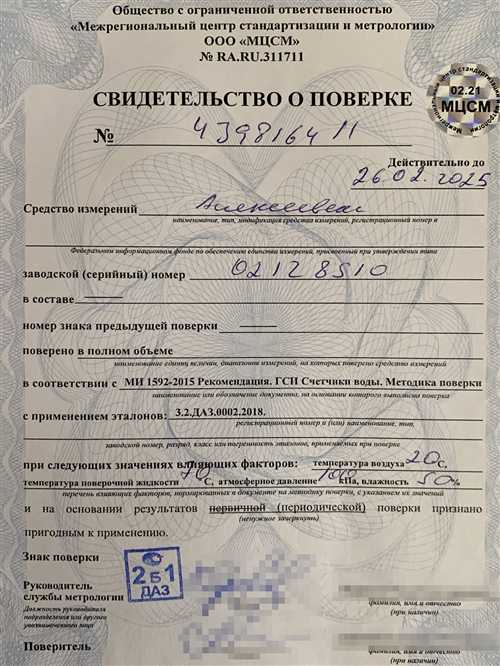 Общество с ограниченной ответственностью
«Межрегиональный центр стандартизации и метрологии»
ООО «МЦСМ»
№ RA.RU.311711
02.21
МЦСМ
СВИДЕТЕЛЬСТВО О ПОВЕРКЕ
№ 439816411
Действительно до
26.02.2025
Средство измерений
наименование, тип, модификация средства измерений, регистрационный номер в
Федеральном информационном фонде по обеспечению единства измерений, присвоенный при утверждении типа
заводской (серийный) номер 02128510
в составе —
номер знака предыдущей поверки —
поверено в полном объеме
наименование единиц величин, диапазонов измерений, на которых поверено средство измерений
в соответствии с МИ 1592-2015 Рекомендация. ГСИ Счетчики воды. Методика поверки
наименование или обозначение документа, на основании которого выполнена поверка
с применением эталонов: 3.2.ДАЗ.0002.2018.
регистрационный номер и (или) наименование, тип,
заводской номер, разряд, класс или погрешность эталонов, применяемых при поверке
при следующих значениях влияющих факторов: температура воздуха 20 С,
температура поверочной жидкости С, атмосферное давление 100 кПа, влажность 50 %
перечень влияющих факторов, нормированных в документе на методику поверки, с указанием их значений
и на основании результатов первичной (периодической) поверки признано
(ненужное зачеркнуть)
пригодным к применению.
Знак поверки
2 6 1
ДАЗ
Руководитель
службы метрологии
Должность руководителя
подразделения или другого
уполномоченного лица
фамилия, имя и отчество
(при наличии)
Поверитель
фамилия, имя и отчество
(при наличии)